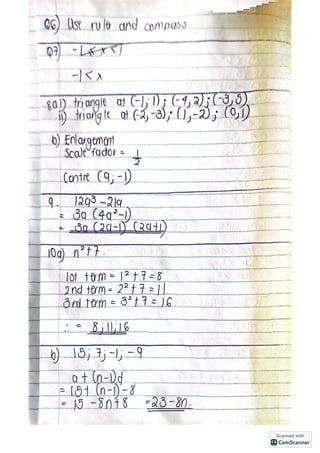 Q6) Use rule and compass
Q7) -1<x<1
-1<x
8a i) triangle at (-1; 1); (-4, 2); (-3, 5)
ii) triangle at (-2, -3); (1, -2); (0, 1)
b) Enlargement
Scale factor = 1/2
Centre (9, -1)
9. 12a³ -21a
= 3a (4a²-1)
= 3a (2a-1) (2a+1)
10a) n²+7.
1st term = 1²+7=8
2nd term = 2²+7=11
3rd term = 3²+7=16
∴ = 8; 11; 16
b) 15; 7; -1; -9
a + (n-1)d
= 15+ (n-1)-8
= 15 -8n+8 =23-8n.
Scanned with
CS CamScanner